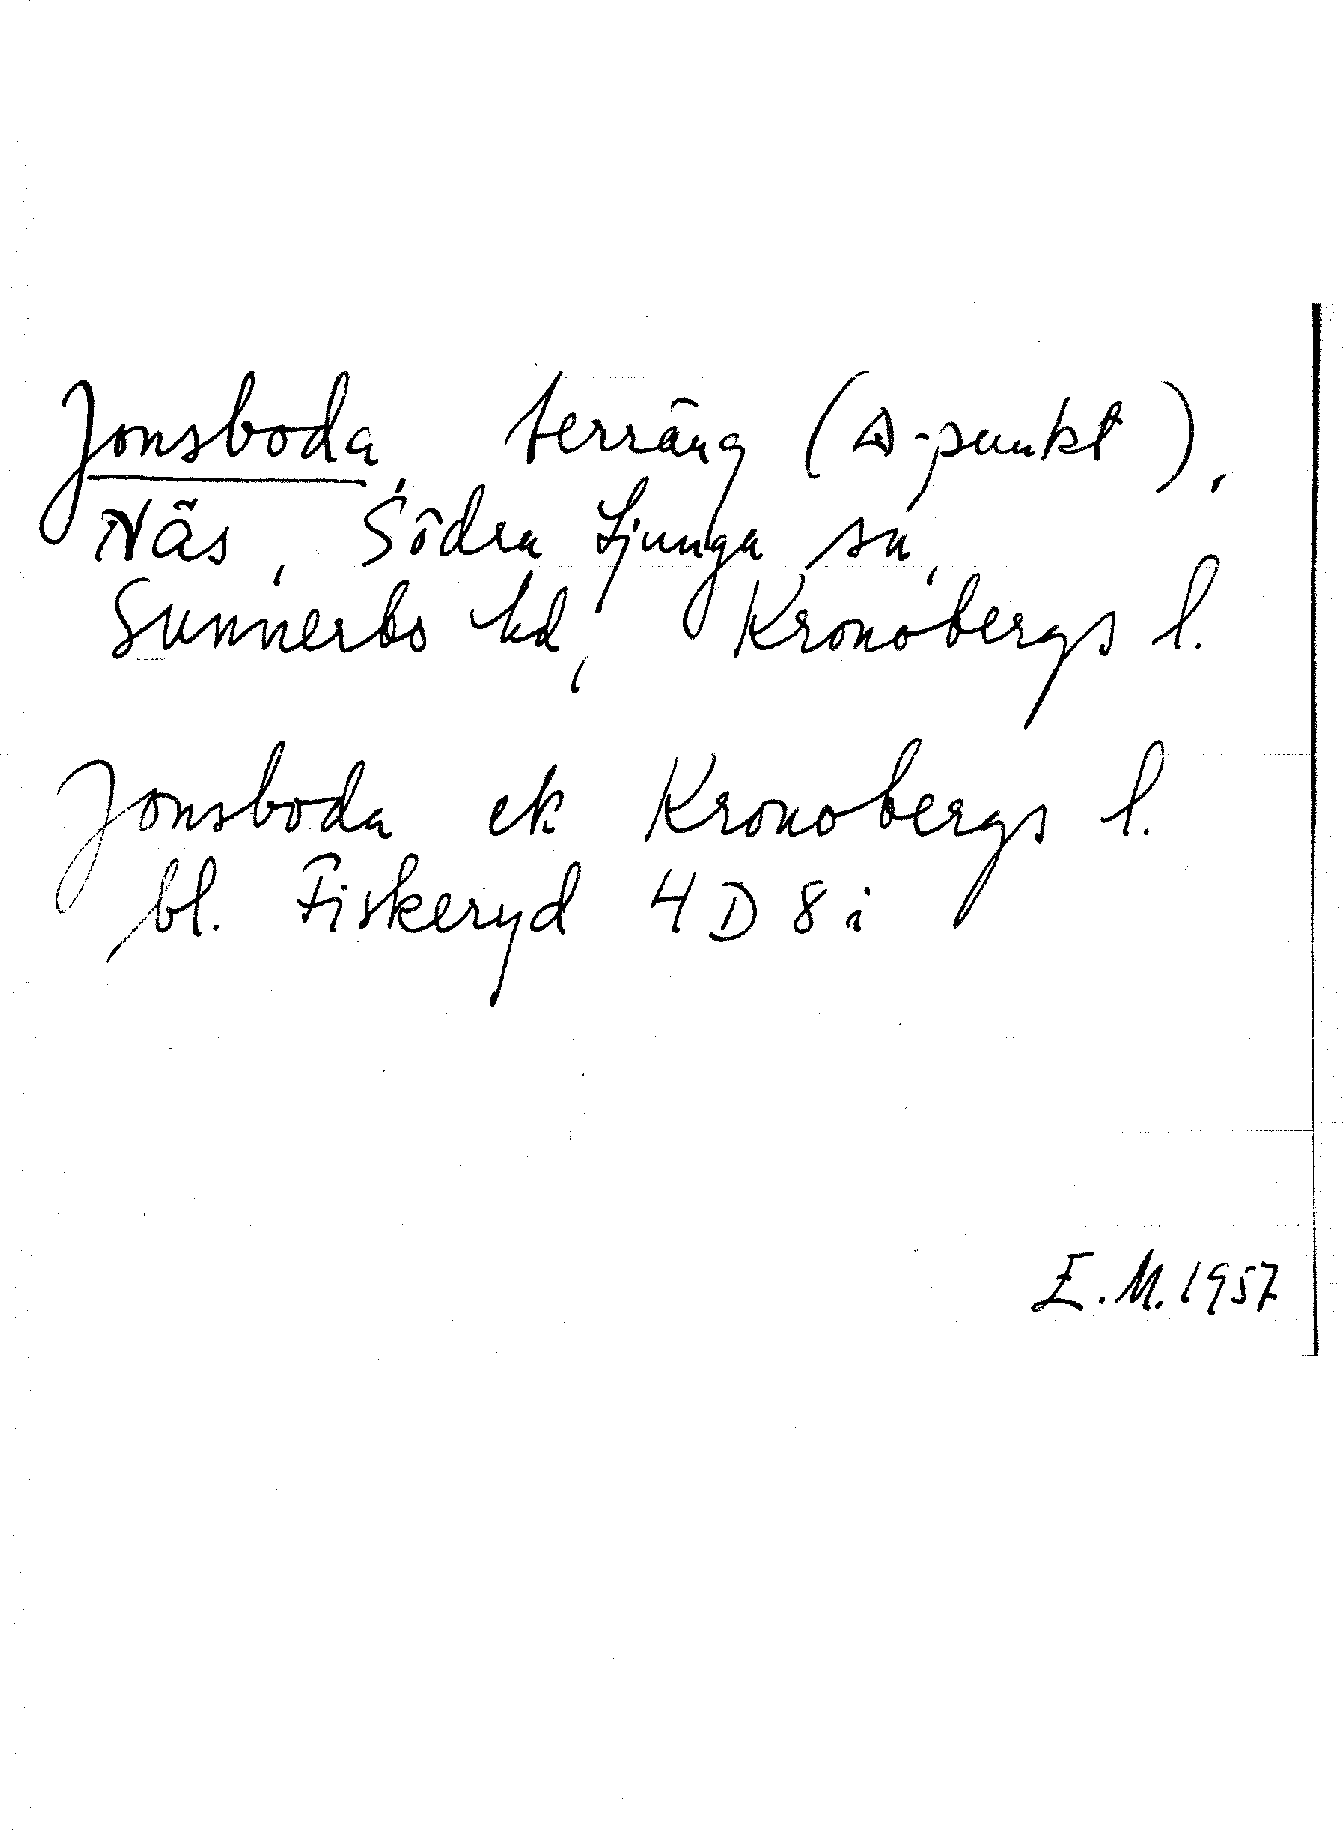 Jonsboda, terräng (Δ-punkt),
Näs, Södra Ljunga sn,
Sunnerbo hd, Kronobergs l.
Jonsboda ek Kronobergs l.
bl. Fiskeryd 4D 8i
E.M. 1957